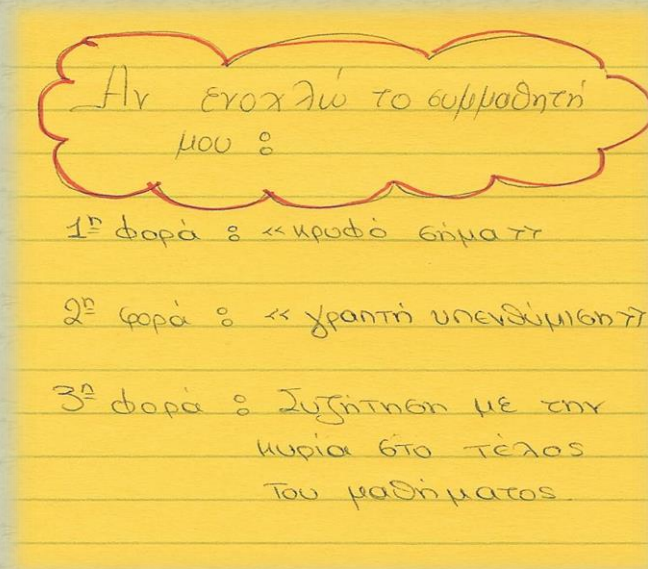 Αν ενοχλώ το συμμαθητή
μου :
1η φορά : «κρυφό σήμα»
2η φορά : «γραπτή υπενθύμιση»
3η φορά : Συζήτηση με την
κυρία στο τέλος
του μαθήματος.